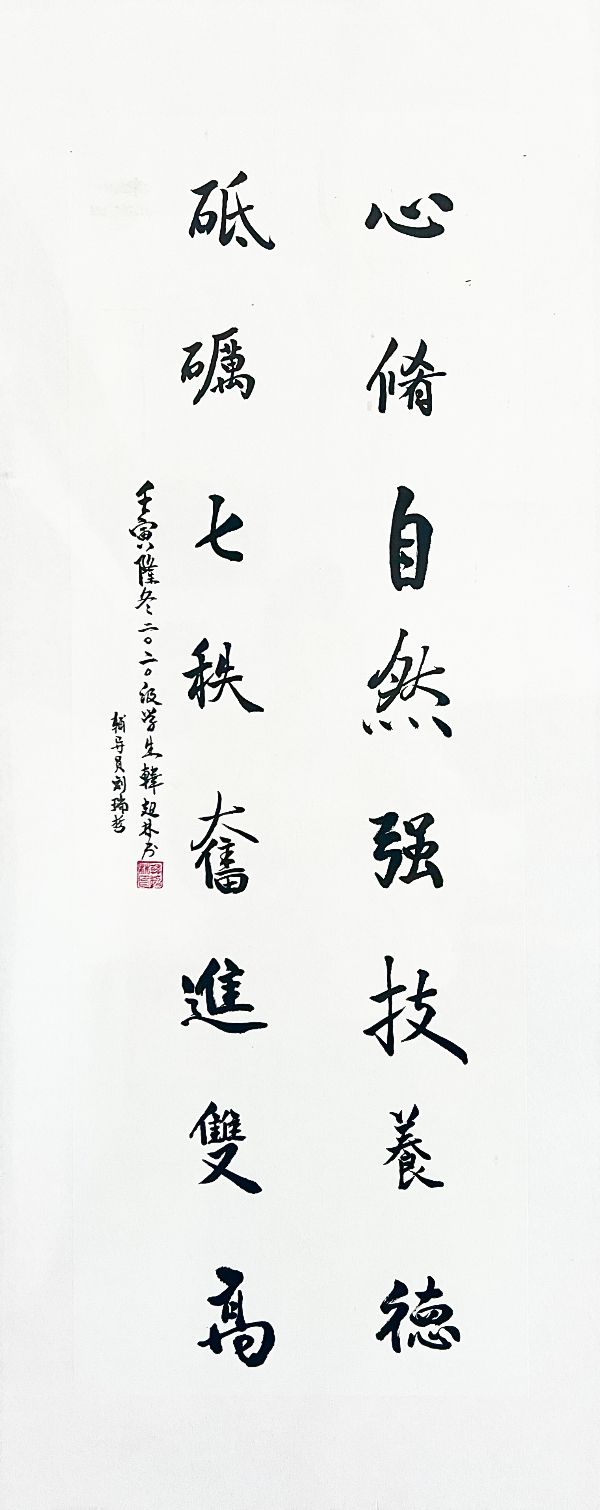 心脩自然强技養德
砥礪七秩奮進雙高
壬寅隆冬二〇二〇级学生韓超林书
辅导员刘瑞哲